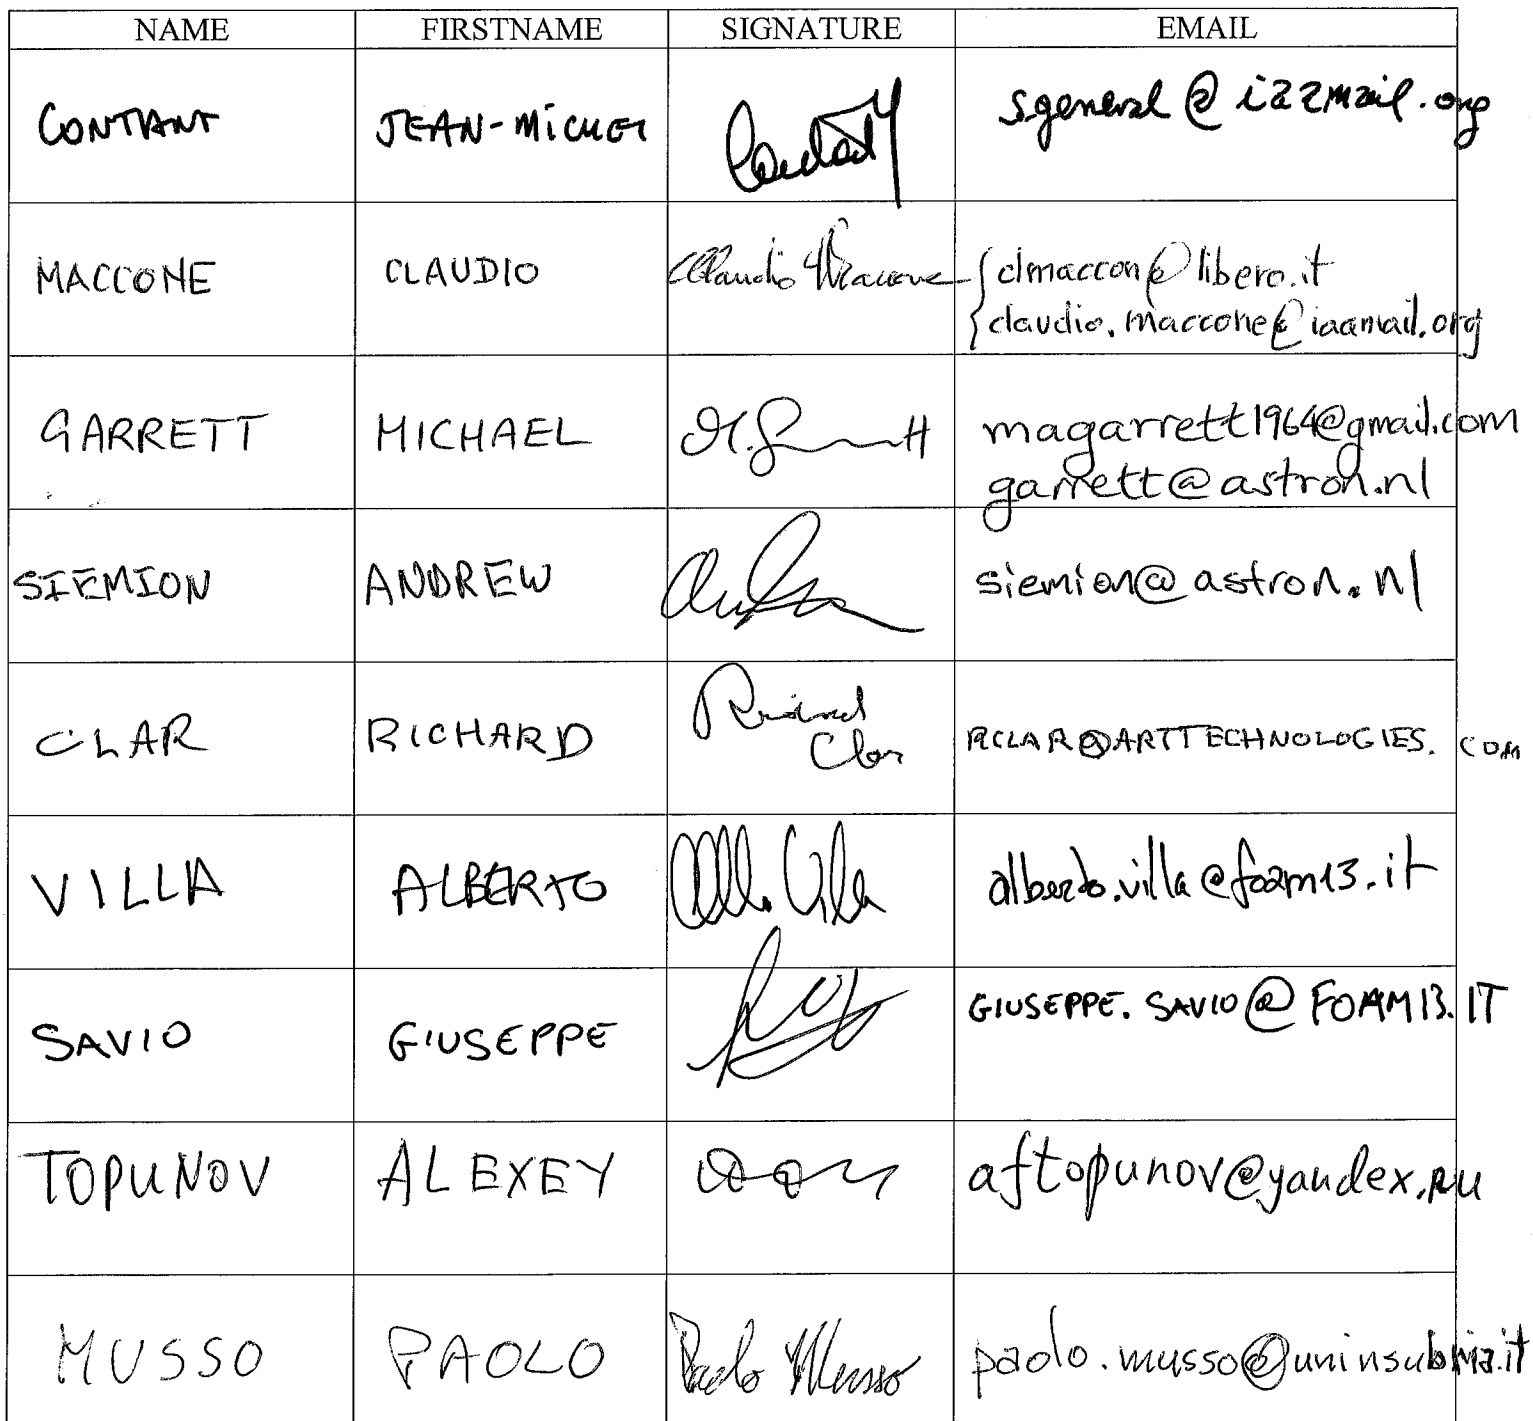 NAME FIRSTNAME SIGNATURE EMAIL
CONTANT JEAN-MICHEL sgeneral@iaamail.org
MACCONE CLAUDIO Claudio Maccone clmaccon@libero.it
claudio.maccone@iaamail.org
GARRETT MICHAEL magarrett1964@gmail.com
garrett@astron.nl
SIEMION ANDREW siemion@astron.nl
CLAR RICHARD Richard RCLAR@ARTTECHNOLOGIES.COM
Clar
VILLA ALBERTO alberto.villa@foam13.it
SAVIO GIUSEPPE GIUSEPPE.SAVIO@FOAM13.IT
TOPUNOV ALEXEY aftopunov@yandex.ru
MUSSO PAOLO Paolo Musso paolo.musso@uninsubria.it